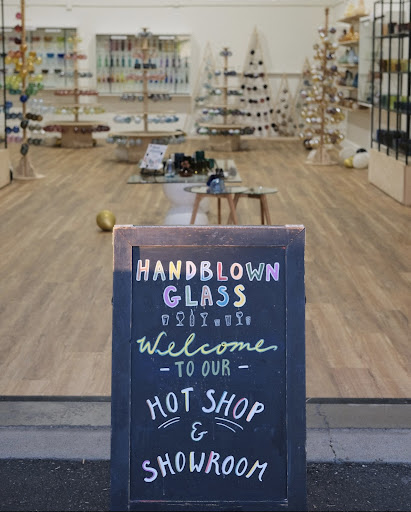 HANDBLOWN
GLASS
Welcome
- TO OUR -
HOT SHOP
&
SHOWROOM